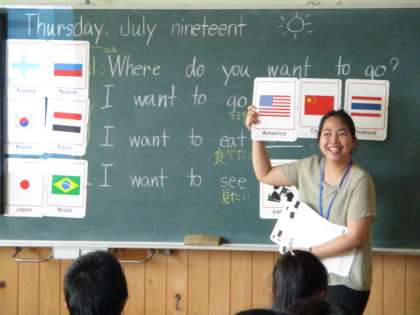 Thursday, July nineteent
Where do you want to go?
I want to go
行きたい
I want to eat
食べたい
I want to see
見たい
Finland
Russia
Korea
Egypt
Japan
Brazil
America
Thailand